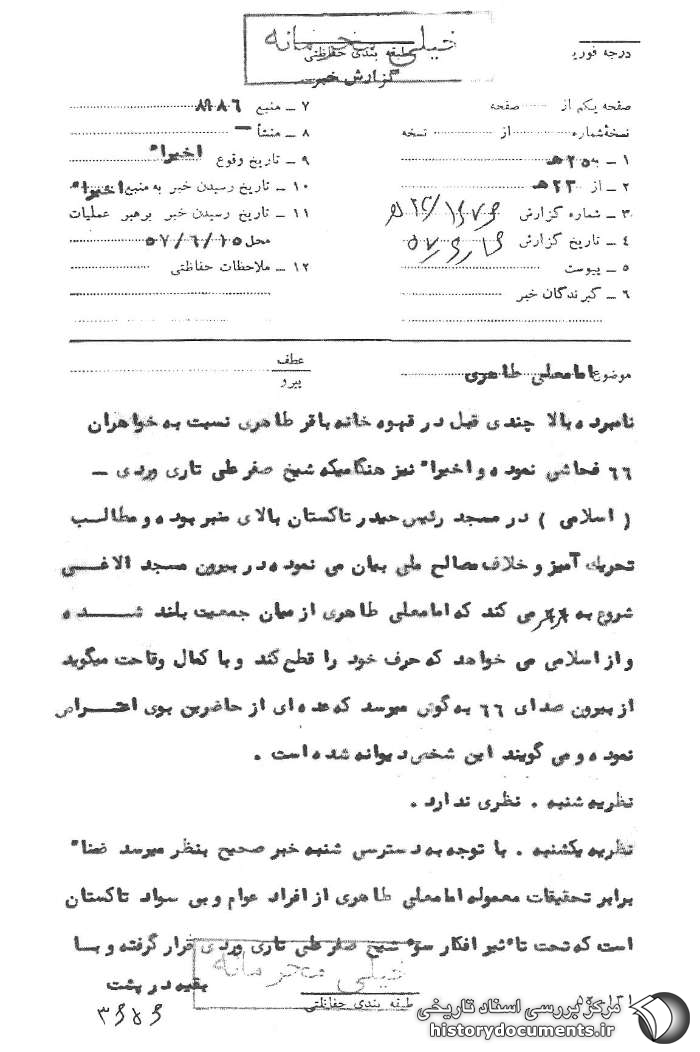 خیلی محرمانه
درجه فوری
طبقه بندی حفاظتی
گزارش خبر
صفحه یکم از صفحه
نسخه شماره از نسخه
۱ ــ به ۲۵ هـ
۲ ــ از ۲۳ هـ
۳ ــ شماره گزارش
۴ ــ تاریخ گزارش
۵ ــ پیوست
۶ ــ گیرندگان خبر
۷ ــ منبع ۸۹۸۶
۸ ــ منشأ ــ
۹ ــ تاریخ وقوع اخیراً
۱۰ ــ تاریخ رسیدن خبر به منبع اخیراً
۱۱ ــ تاریخ رسیدن خبر برهبر عملیات
محل ۵۷/۶/۱۵
۱۲ ــ ملاحظات حفاظتی
موضوع امامعلی طاهری
عطف
پیرو
نامبرده بالا چندی قبل در قهوه خانه باقر طاهری نسبت به خواهران
۶۶ فحاشی نموده و اخیراً نیز هنگامیکه شیخ صفرعلی تاری وردی ــ
( اسلامی ) در مسجد رئیس حیدر تاکستان بالای منبر بوده و مطالب
تحریک آمیز و خلاف مصالح ملی بیان می نموده در بیرون مسجد الاغی
شروع به عرعر می کند که امامعلی طاهری از میان جمعیت بلند شده
و از اسلامی می خواهد که حرف خود را قطع کند و با کمال وقاحت میگوید
از بیرون صدای ۶۶ به گوش میرسد که عده ای از حاضرین بوی اعتراض
نموده و می گویند این شخص دیوانه شده است .
نظریه شنبه . نظری ندارد .
نظریه یکشنبه . با توجه به دسترسی شنبه خبر صحیح بنظر میرسد ضمناً
برابر تحقیقات معموله امامعلی طاهری از افراد عوام و بی سواد تاکستان
است که تحت تأثیر افکار سوء شیخ صفرعلی تاری وردی قرار گرفته و بسا
بقیه در پشت
خیلی محرمانه
طبقه بندی حفاظتی
مرکز بررسی اسناد تاریخی
historydocuments.ir